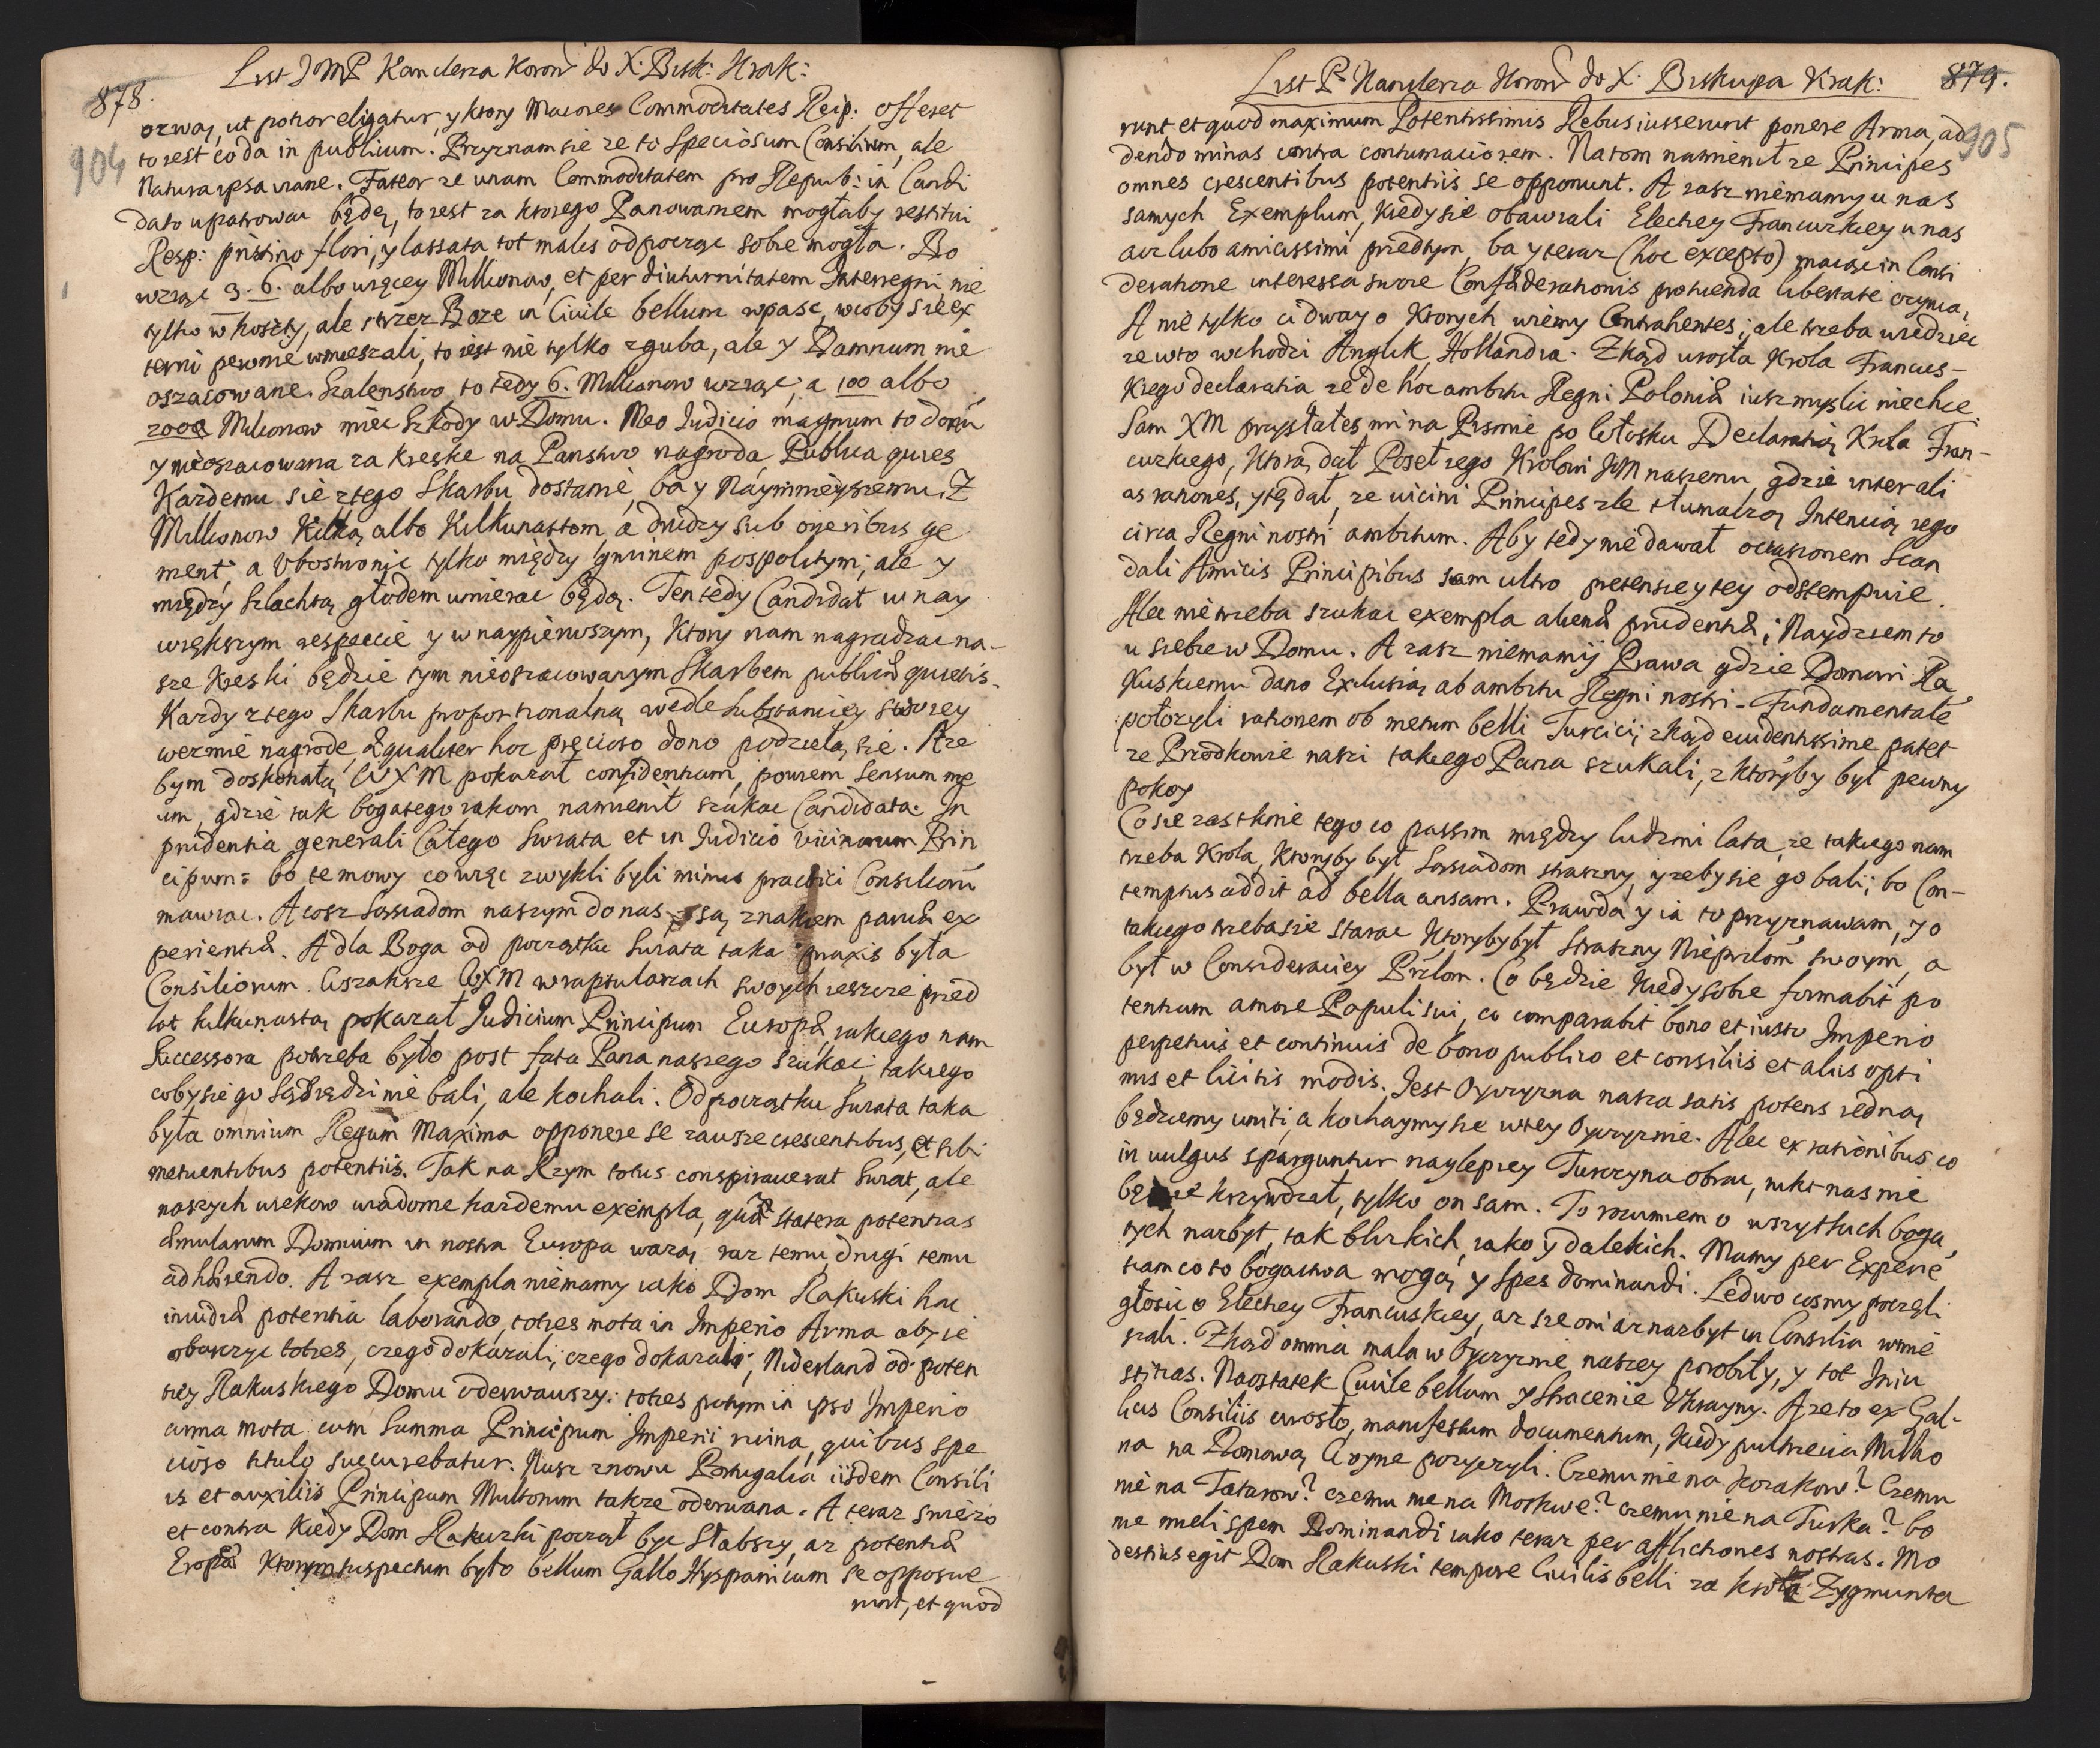 878.
904
List JoMP Kanclerza Koron do X. Bisk: Krak:
ozwą, ut potior eligatur, y ktory Maiores Commoditates Reip. offeret
to iest co da in publicum. Przyznam sie ze to Speciosum Consilium, ale
Natura ipsa vane. Fateor ze unam Commoditatem pro Repub: in Candi
dato upatrowac będę, to iest za ktorego Panowaniem mogłaby restitui
Resp: pristino flori, y lassata tot malis odpocząc sobie mogła. Bo
wziąc 3. 6. albo więcey Millionow, et per diuturnitatem Interregni nie
tylko w koszty, ale strzez Boze in Civile bellum wpasc, w coby sie ex
terni pewnie wmieszali, to iest nie tylko zguba, ale y Damnum nie
oszacowane. Szalenstwo to tedy 6. Millionow wziąc, a 100 albo
2000 Milionow miec Szkody w Domu. Meo Judicio magnum to donū
y nieoszacowana za kreske na Panstwo nagroda Publica quies
Kazdemu sie z tego Skarbu dostanie, ba y Naymnieyszemu. Z
Millionow Kilką albo Kilkunastom, a drudzy sub oneribus ge
ment, a Vbostwo nie tylko między gminem pospolitym, ale y
między Szlachtą głodem umierac będą. Ten tedy Candidat w nay
większym respeccie y w naypierwszym, Ktory nam nagradzac na-
sze kreski będzie tym nieoszacowanym Skarbem publicæ quietis.
Kazdy z tego Skarbu proportionalną wedle Substanciey swoiey
wezmie nagrode, Equaliter hoc precioso dono podzielą sie. A ze
bym doskonałą WXM pokazał confidentiam, powiem Sensum me
um, gdzie tak bogatego iakom namienił szukac Candidata. In
prudentia generali Całego Swiata et in Judicio vicinorum Prin
cipum: bo te mowy co więc zwykli byli minus practici Consiliorū
mawiac. A cosz Sąsiadom naszym do nas, są znakiem parvæ ex
perientiæ. A dla Boga od początku Swiata taka praxis była
Consiliorum. Wszakze WXM w raptularzach swoych ieszcze przed
lot kilkunastą pokazał Judicium Principum Europæ, iakiego nam
Successora potrzeba było post fata Pana naszego szukac; takiego
coby sie go Sąsiedzi nie bali, ale kochali. Od początku Swiata taka
była omnium Regum Maxima opponere se zawsze crescentibus, et sibi
metuentibus potentiis. Tak na Rzym totus conspiraverat Swiat, ale
naszych wiekow wiadome kazdemu exempla, quæ statera potentias
æmularum Domuum in nostra Europa wazą, raz temu, drugi temu
adhærendo. A zasz exempla niemamy iako Dom Rakuski hac
invidia potentia laborando, toties mota in Imperio Arma aby ie
obaczyc toties, czego dokazali; czego dokazali; Niderland od poten
tiey Rakuskiego Domu oderwawszy: toties potym in ipso Imperio
arma mota cum Summa Principum Imperii ruina, quibus spe
cioso titulo succurebatur. Nusz znowu Portugalia iisdem Consili
is et auxiliis Principum Multorum takze oderwana. A teraz swiezo
et contra Kiedy Dom Rakuzki począł byc słabszy, az potentiæ
Eropæ ktorym suspectum było bellum Gallo Hyspanicum se opposue
runt, et quod
List P. Kanclerza Koron do X. Biskupa Krak:
879.
905
runt et quod maximum Potentissimis Rebus iusserunt ponere Arma, ad
dendo minas contra contumaciorem. Na tom namienił ze Principes
omnes crescentibus potentiis se opponunt. A zasz niemamy u nas
samych Exemplum, kiedy sie obawiali Electiey Francuzkiey u nas
acz lubo amicissimi przedtym, ba y teraz (hoc excepto) maiąc in Consi
deratione interessa swoie Confæderationis pro tuenda libertate czynią,
A nie tylko ci dway o ktorych wiemy Contrahentes; ale trzeba wiedziec
ze w to wchodzi Anglik, Hollandia. Zkąd urosła Krola Francus-
kiego declaratia ze de hoc ambitu Regni Poloniæ iusz myslic niechce.
Sam XM przysłałes mi na Pismie po Włosku Declaratią Krola Fran-
cuzkiego, Ktorą dał Poseł iego Krolowi JM naszemu, gdzie inter ali
as rationes, y tę dał, ze vicini Principes zle tłumaczą Intencią iego
circa Regni nostri ambitum. Aby tedy nie dawał occasionem Scan
dali Amicis Principibus sam ultro pretensiey tey odstempuie.
Alec nie trzeba szukac exempla alienæ prudentiæ; Naydziem to
u siebie w Domu. A zasz niemamij Prawa gdzie Domowi Ra
kuskiemu dano Exclusią ab ambitu Regni nostri. Fundamentale
położyli rationem ob metum belli Turcici; zkąd evidentissime patet
ze Przodkowie naszi takiego Pana szukali, z ktoryby był pewny
pokoy
Co sie zas tknie tego co passim między ludzmi lata, ze takiego nam
trzeba Krola, Ktoryby był Sąsiadom straszny, y zeby sie go bali; bo Con-
temptus addit ad bella ansam. Prawda y ia to przyznawam, y o
takiego trzeba sie starac Ktoryby był straszny Nieprzlom swoym, a
był w Consideraciey Przlom. Co będzie kiedy sobie formabit po
tentiam amore Populi sui, co comparabit bono et iusto Imperio
perpetuis et continuis de bono publico et consiliis et aliis opti
mis et licitis modis. Jest Oyczyzna nasza satis potens iedną,
będziemy uniti, a kochaymy sie w tey Oyczyznie. Alec ex rationibus co
in vulgus sparguntur naylepiey Turczyna obrac, nikt nas nie
będzie krzywdzał, tylko on sam. To rozumiem o wszytkich boga
tych nazbyt, tak blizkich, iako y dalekich. Mamy per Experie
tiam co to bogactwa mogą, y spes dominandi. Ledwo cosmy poczęli
głosic o Electiey Francuskiey, az sie oni az nazbyt in Consilia wmie
szali. Zkąd omnia mala w Oyczyznie naszey porobiły, y tot Iniu
stitias. Naostatek Civile bellum y Stracenie Ukrayny. A ze to ex Gal-
licis Consiliis urosło, manifestum documentum, kiedy pułtrzecia Millio
na na Domową Woyne pozyczyli. Czemu nie na Kozakow? Czemu
nie na Tatarow? czemu nie na Moskwe? czemu nie na Turka? bo
nie mieli spem Dominandi iako teraz per afflictiones nostras. Mo
destius egit Dom Rakuski tempore Civilis belli za krola Zygmunta